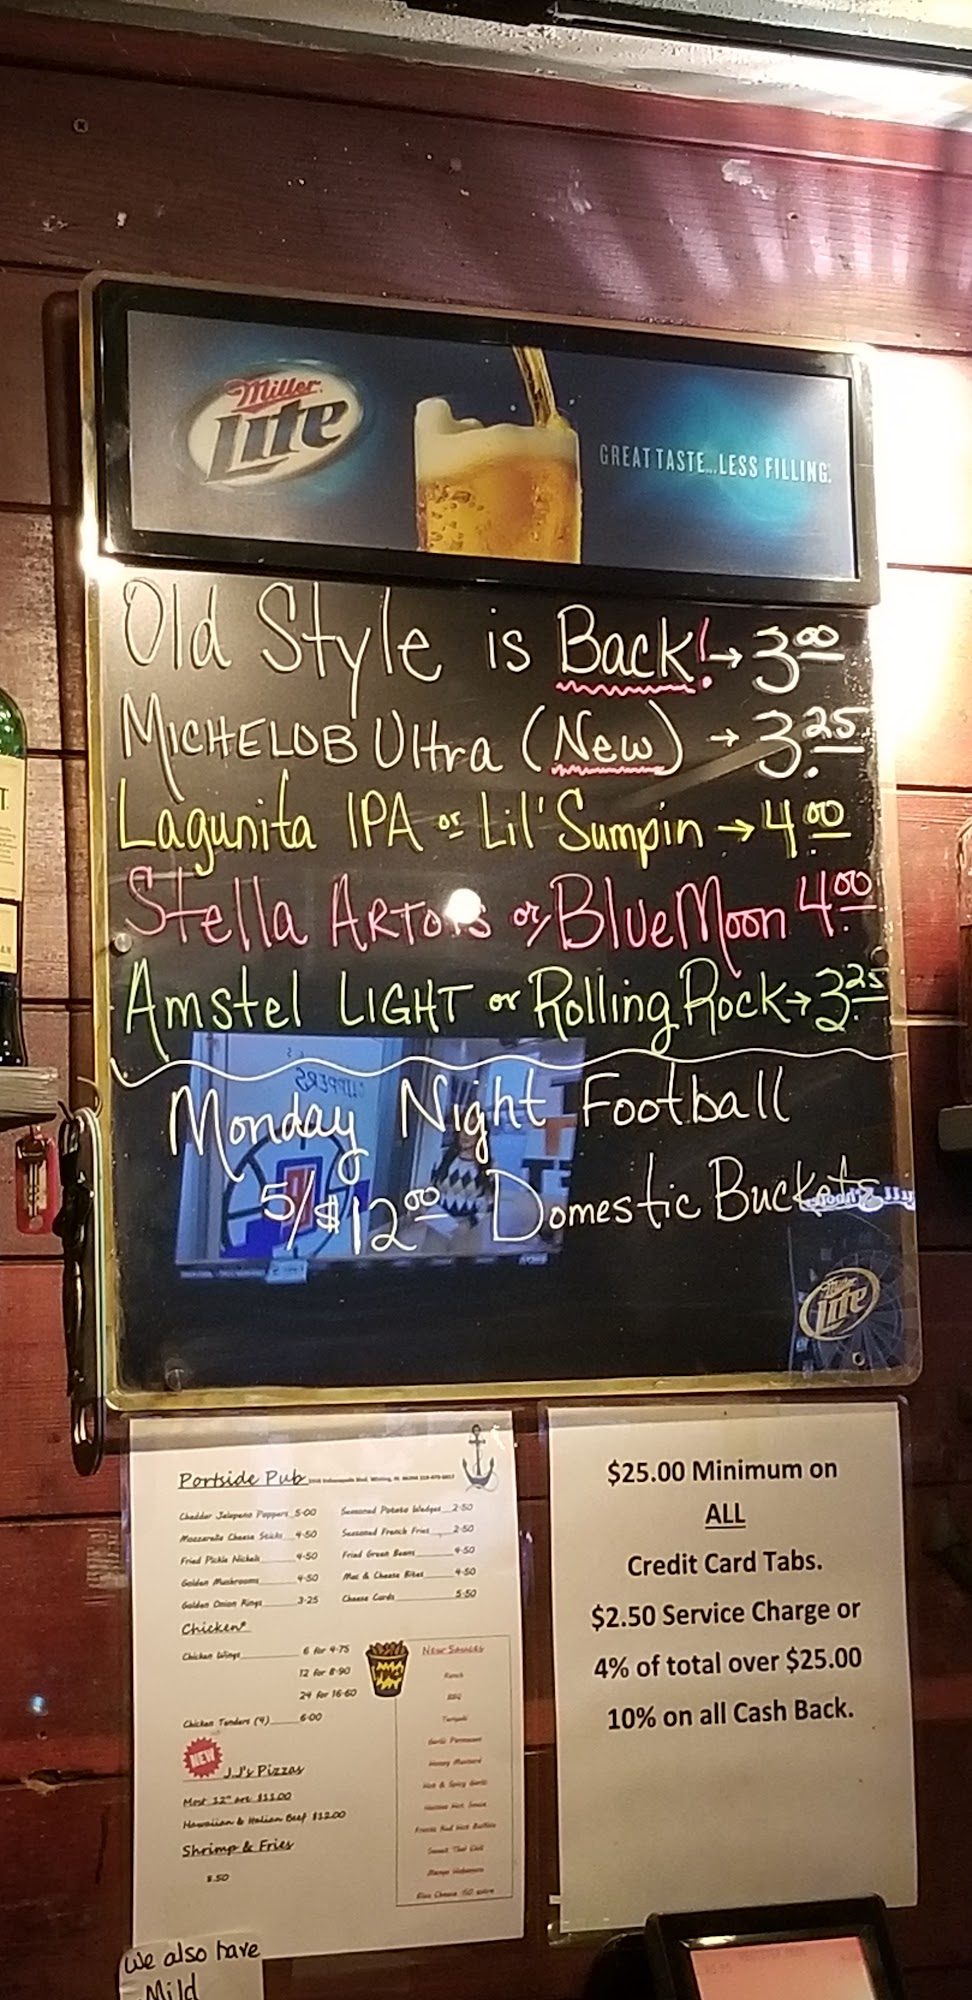 Miller
Lite
GREAT TASTE...LESS FILLING.
Old Style is Back! → 3.00
MICHELOB Ultra (New) → 3.25
Lagunita IPA or Lil' Sumpin → 4.00
Stella ARTOIS or Blue Moon 4.00
Amstel LIGHT or Rolling Rock → 3.25
Monday Night Football
5/$12.00 Domestic Buckets
Miller
Lite
Portside Pub
Cheddar Jalapeno Poppers 5.00
Mozzarella Cheese Sticks 4.50
Fried Pickle Nickels 4.50
Golden Mushrooms 4.50
Golden Onion Rings 3.25
Seasoned Potato Wedges 2.50
Seasoned French Fries 2.50
Fried Green Beans 4.50
Mac & Cheese Bites 4.50
Cheese Curds 5.50
Chicken
Chicken Wings 6 for 4.75
12 for 8.90
24 for 16.60
Chicken Tenders (4) 6.00
NEW
J.J's Pizzas
Most 12" are $11.00
Hawaiian & Italian Beef $12.00
Shrimp & Fries
8.50
New Sauces
Ranch
BBQ
Teriyaki
Garlic Parmesan
Honey Mustard
Hot & Spicy Garlic
Franks Red Hot Buffalo
Sweet Thai Chili
Mango Habanero
$25.00 Minimum on
ALL
Credit Card Tabs.
$2.50 Service Charge or
4% of total over $25.00
10% on all Cash Back.
We also have
Mild